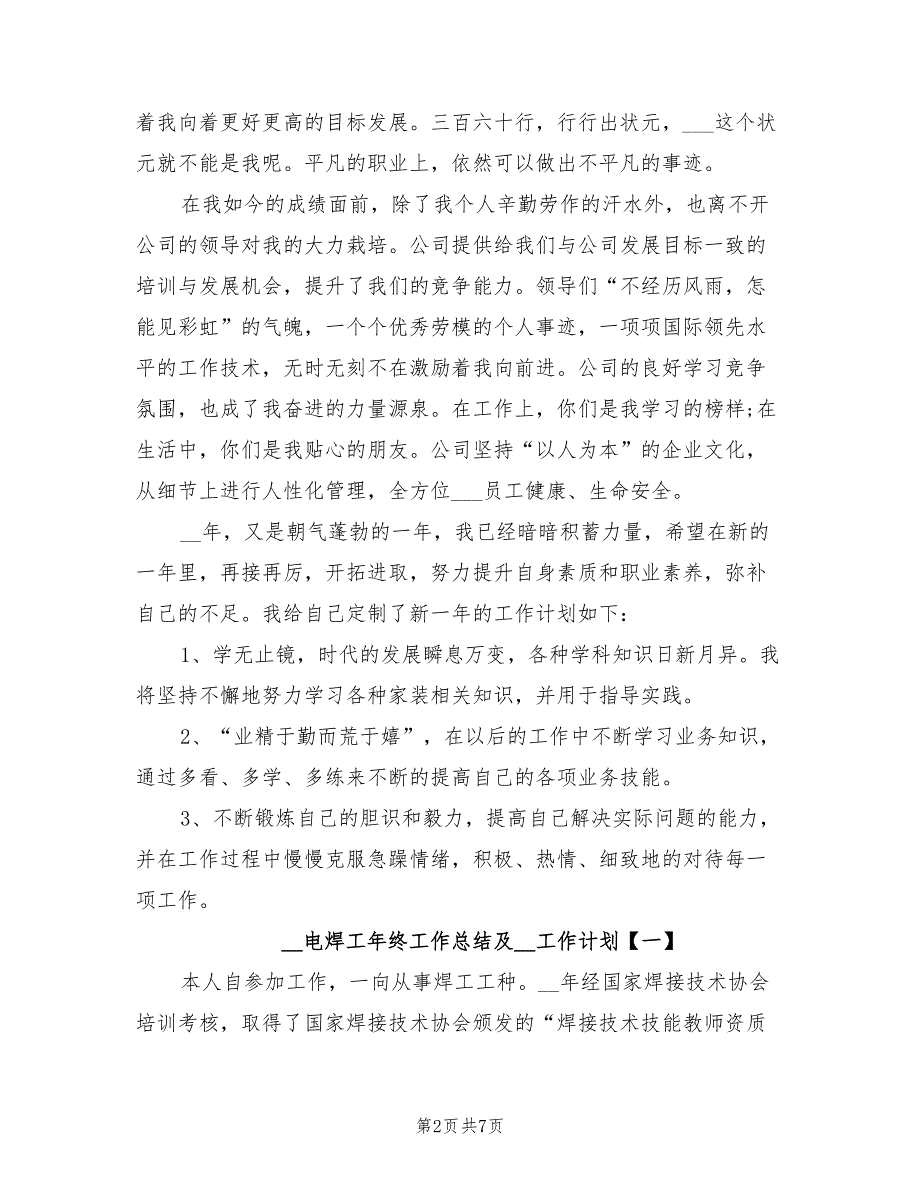 着我向着更好更高的目标发展。三百六十行，行行出状元，___这个状
元就不能是我呢。平凡的职业上，依然可以做出不平凡的事迹。
在我如今的成绩面前，除了我个人辛勤劳作的汗水外，也离不开
公司的领导对我的大力栽培。公司提供给我们与公司发展目标一致的
培训与发展机会，提升了我们的竞争能力。领导们“不经历风雨，怎
能见彩虹”的气魄，一个个优秀劳模的个人事迹，一项项国际领先水
平的工作技术，无时无刻不在激励着我向前进。公司的良好学习竞争
氛围，也成了我奋进的力量源泉。在工作上，你们是我学习的榜样;在
生活中，你们是我贴心的朋友。公司坚持“以人为本”的企业文化，
从细节上进行人性化管理，全方位___员工健康、生命安全。
__年，又是朝气蓬勃的一年，我已经暗暗积蓄力量，希望在新的
一年里，再接再厉，开拓进取，努力提升自身素质和职业素养，弥补
自己的不足。我给自己定制了新一年的工作计划如下：
1、学无止镜，时代的发展瞬息万变，各种学科知识日新月异。我
将坚持不懈地努力学习各种家装相关知识，并用于指导实践。
2、“业精于勤而荒于嬉”，在以后的工作中不断学习业务知识，
通过多看、多学、多练来不断的提高自己的各项业务技能。
3、不断锻炼自己的胆识和毅力，提高自己解决实际问题的能力，
并在工作过程中慢慢克服急躁情绪，积极、热情、细致地的对待每一
项工作。
__电焊工年终工作总结及__工作计划【一】
本人自参加工作，一向从事焊工工种。__年经国家焊接技术协会
培训考核，取得了国家焊接技术协会颁发的“焊接技术技能教师资质
第2页共7页